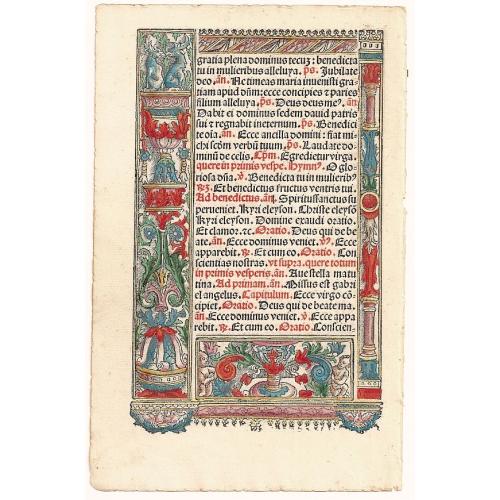 gratia plena dominus tecuʒ: benedicta
tu in mulieribus alleluya. p̄s. Jubilate
deo. an̄. Ne timeas maria invenisti gra-
tiam apud dn̄m: ecce concipies ⁊ paries
filium alleluya. p̄s. Deus deus meꝰ. an̄.
Dabit ei dominus sedem david patris
sui ⁊ regnabit ineternum. p̄s. Benedici
te oīa. an̄. Ecce ancilla domini: fiat mi-
chi scd̄m verbū tuum. p̄s. Laudate do-
minū de celis. Cp̄m. Egredietur virga.
quere in primis vespe. Hymnꝰ. O glo-
riosa dn̄a. v̄. Benedicta tu in mulieribꝰ
℟. Et benedictus fructus ventris tui.
Ad benedictus. an̄. Spiritussanctus su
perveniet. Kyri eleyson. Christe eleysō
Kyri eleyson. Domine exaudi oratio.
Et clamor. ⁊c. Oratio. Deus qui de be
ate. an̄. Ecce dominus veniet. v̄ꝰ. Ecce
apparebit. ℟. Et cum eo. Oratio. Con
scientias nostras. vt supra. quere totum
in primis vesperis. an̄. Ave stella matu
tina. Ad primam. an̄. Missus est gabri
el angelus. Capitulum. Ecce virgo cō
cipiet. Oratio. Deus qui de beate ma.
an̄. Ecce dominus veniet. v̄. Ecce appa
rebit. ℟. Et cum eo. Oratio. Conscien-